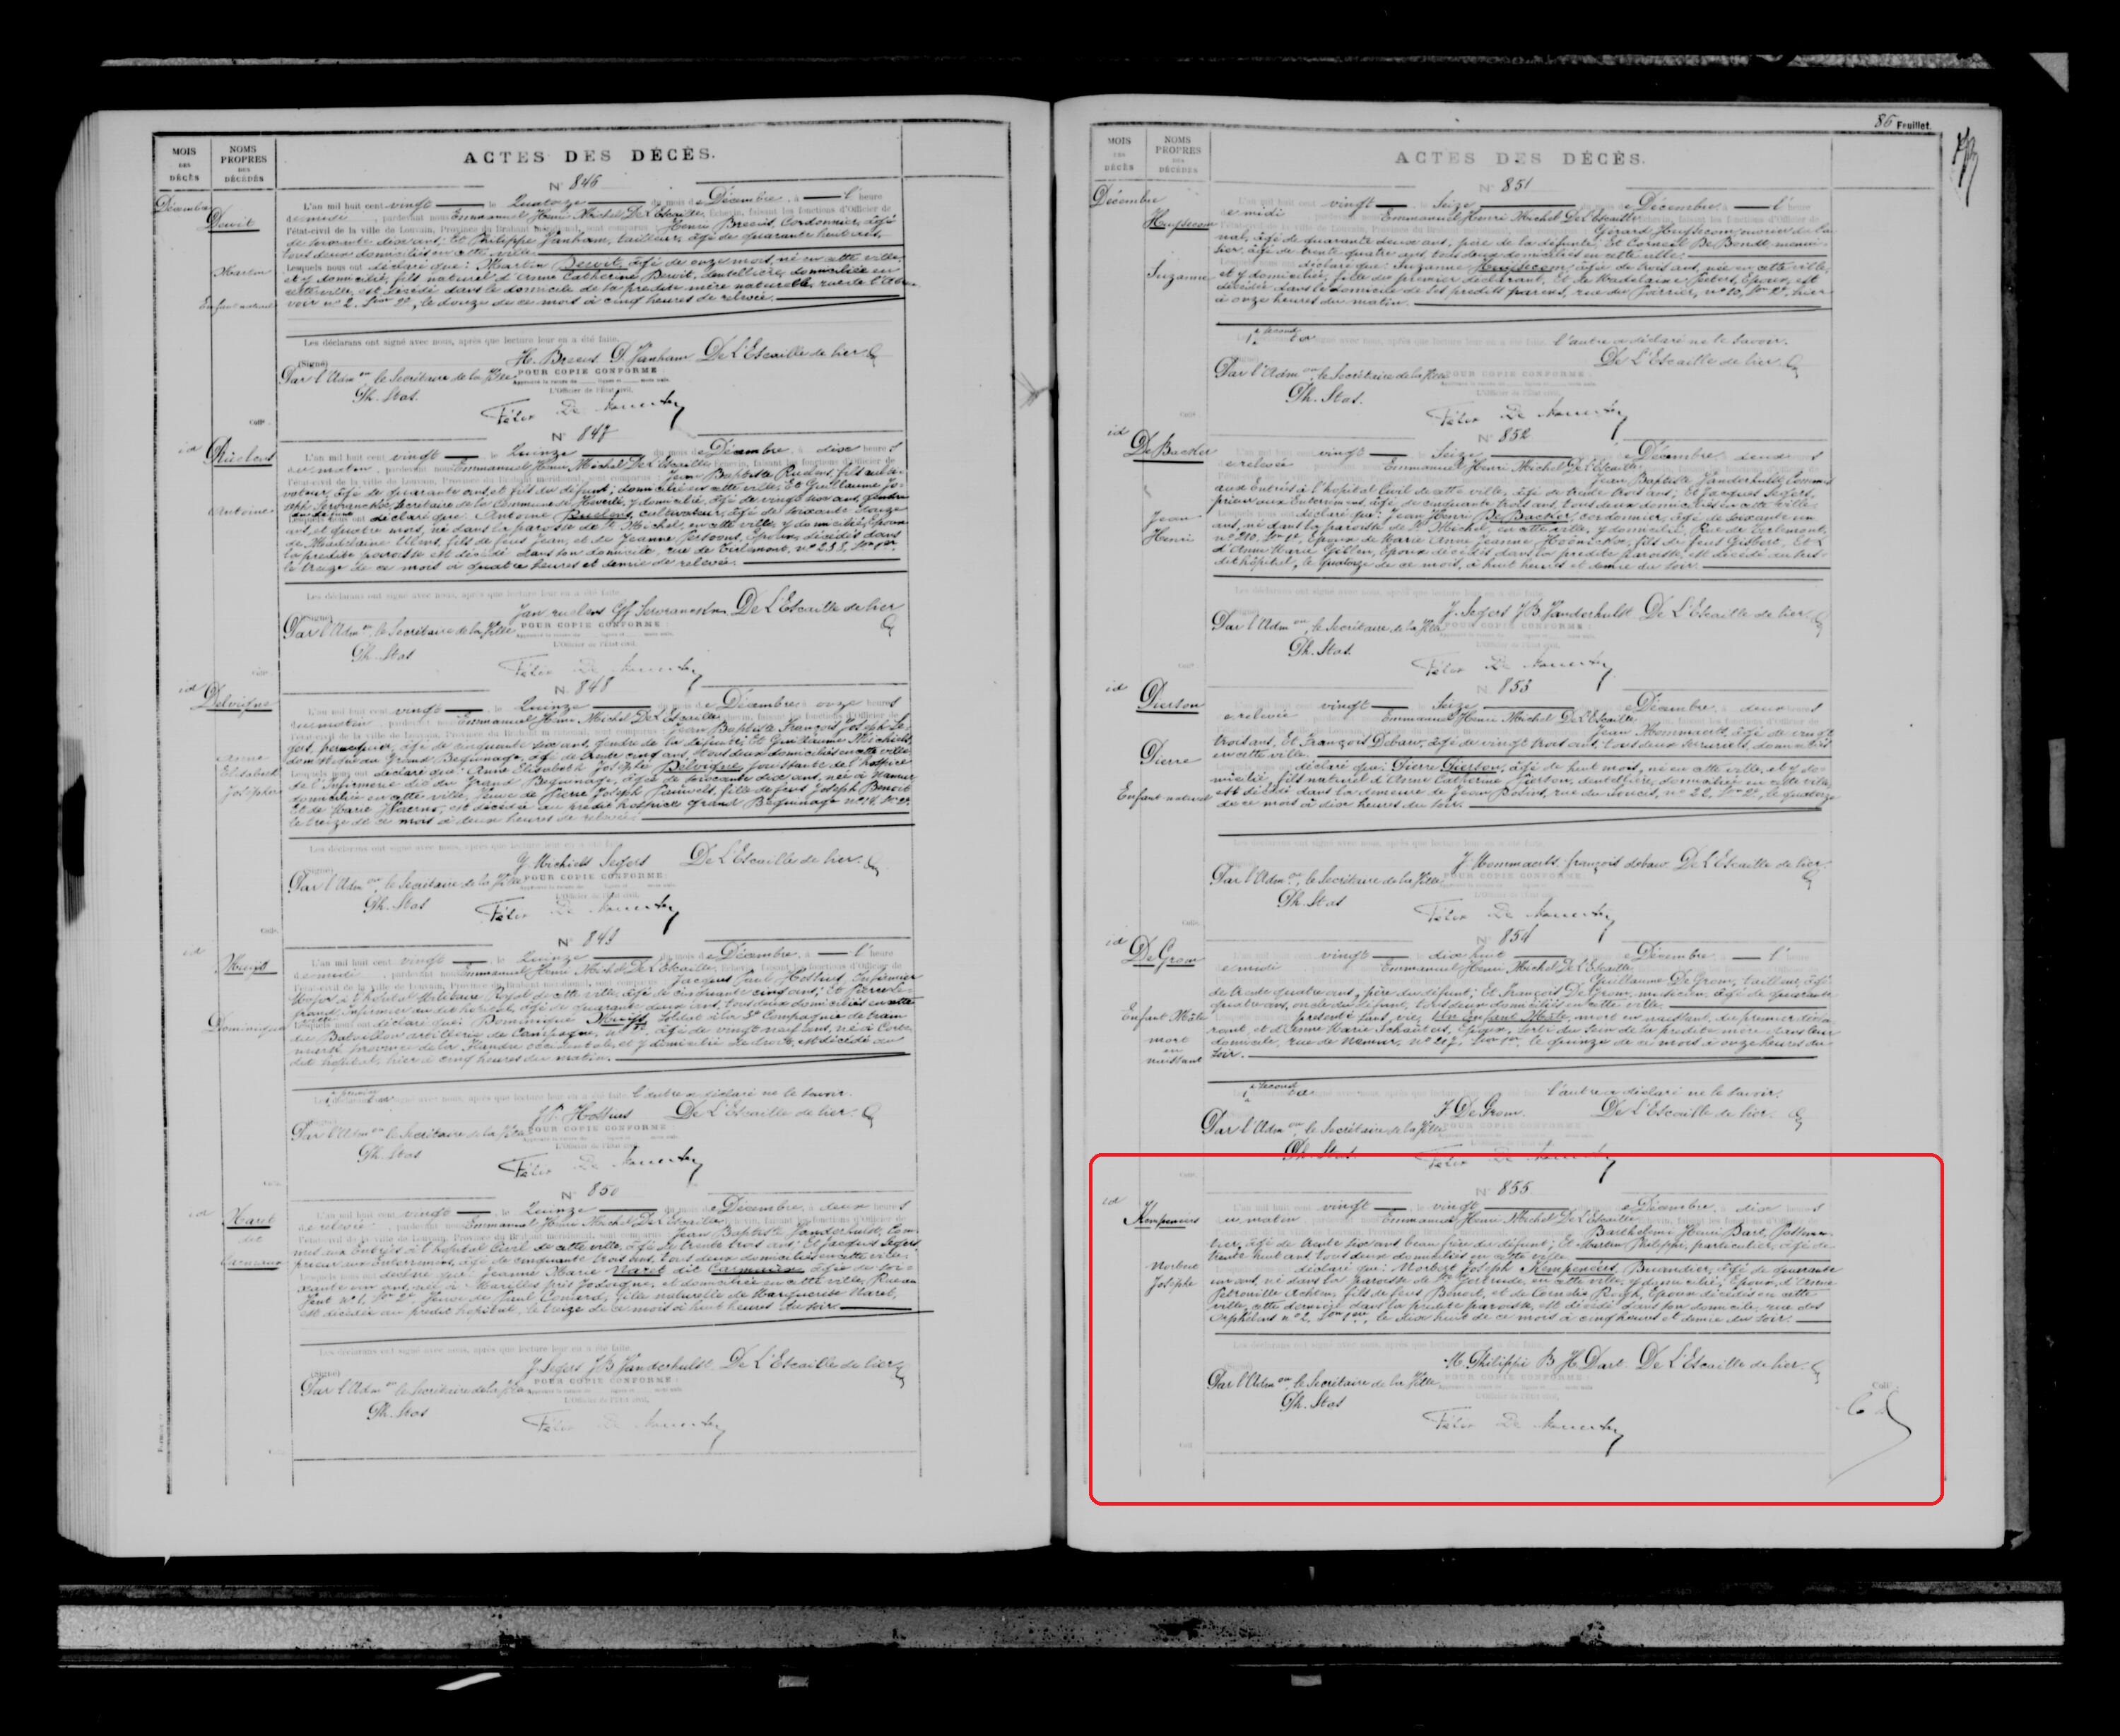 ACTES DES DÉCÈS.
MOIS DES DÉCÈS
NOMS PROPRES DES DÉCÉDÉS
N° 846
Décembre
Benoit
Martin
Enfant naturel
L'an mil huit cent vingt, le Quatorze du mois de Décembre, à l'heure
de midi, pardevant nous Emmanuel Henri Michel De L'Escaille, Echevin, faisant les fonctions d'Officier de
l'état-civil de la ville de Louvain, Province du Brabant méridional, sont comparus: Henri Brecut, Cordonnier, âgé
de soixante dix ans; Et Philippe Vanham, tailleur, âgé de quarante huit ans,
tous deux domiciliés en cette ville.
Lesquels nous ont déclaré que: Martin Benoit, âgé de onze mois, né en cette ville,
et y domicilié, fils naturel d'Anne Catherine Benoit, dentellière, domiciliée en
cette ville, est décédé dans le domicile de la predite mère naturelle, rue de l'
voir n° 2, Son 2e, le douze de ce mois à cinq heures de relevée.
Les déclarans ont signé avec nous, après que lecture leur en a été faite.
(Signé) De L'Escaille de lier
Par l'Adm on, le Secrétaire de la Ville POUR COPIE CONFORME:
L'Officier de l'État civil,
Th. Stas.
N° 847
id
Ruelens
Antoine
L'an mil huit cent vingt, le Quinze du mois de Décembre, à dix heures
du matin, pardevant nous Emmanuel Henri Michel De L'Escaille, Echevin, faisant les fonctions d'Officier de
l'état-civil de la ville de Louvain, Province du Brabant méridional, sont comparus: Jean Baptiste Ruelens, fils culti-
vateur, âgé de quarante ans, et fils du défunt; domicilié en cette ville; Et Guillaume Jo-
seph Servranckx, Secrétaire de la Commune de Heverlé, y domicilié, âgé de vingt six ans, gendre
du défunt
Lesquels nous ont déclaré que: Antoine Ruelens, cultivateur, âgé de soixante seize
ans, et quatre mois, né dans la paroisse de St Michel, en cette ville, y domicilié, Epoux
de Madelaine Ulens, fils de feus Jean, et de Jeanne Persoons, Epoux, décédés dans
la predite paroisse est décédé dans son domicile, rue de Tirlemont, n° 238, Son 1er
le treize de ce mois à quatre heures et demie de relevée.
Les déclarans ont signé avec nous, après que lecture leur en a été faite.
(Signé) Jan ruelens De L'Escaille de lier
Par l'Adm on, le Secrétaire de la Ville POUR COPIE CONFORME:
L'Officier de l'État civil,
Th. Stas
N° 848
id
Delvigne
Anne
Elisabeth
Josephine
L'an mil huit cent vingt, le Quinze du mois de Décembre, à onze heures
du matin, pardevant nous Emmanuel Henri Michel De L'Escaille, Echevin, faisant les fonctions de
l'état-civil de la ville de Louvain, Province du Brabant méridional, sont comparus: Jean Baptiste François Joseph Se-
gers, perruquier, âgé de cinquante six ans, gendre de la défunte; Et Guillaume Michiels
domestique du Grand Beguinage, âgé de trente cinq ans, tous deux domiciliés en cette ville
Lesquels nous ont déclaré que: Anne Elisabeth Josephe Delvigne, jouissante de l'hospice
de l'Infirmerie dit du Grand Beguinage, âgée de soixante dix ans, née à Namur,
domiciliée en cette ville, Veuve de Pierre Joseph Pauwels, fille de feus Joseph Benoit
Et de Marie, est décédée au predit hospice grand Beguinage n° 18, Son 2e,
le treize de ce mois à deux heures de relevée.
Les déclarans ont signé avec nous, après que lecture leur en a été faite.
(Signé) G. Michiels Segers De L'Escaille de lier.
Par l'Adm on, le Secrétaire de la Ville POUR COPIE CONFORME:
L'Officier de l'État civil,
Th. Stas
N° 849
id
Dominique
L'an mil huit cent vingt, le Quinze du mois de Décembre, à l'heure
de midi, pardevant nous Emmanuel Henri Michel De L'Escaille, Echevin, faisant les fonctions d'Officier de
l'état-civil de la ville de Louvain, Province du Brabant méridional, sont comparus: Jacques Paul Hothus, Infirmier
Major à l'hopital Militaire Royal de cette ville, âgé de cinquante cinq ans; Et Pierre Le-
grand, Infirmier au dit hopital, âgé de quarante deux ans, tous deux domiciliés en cette
ville
Lesquels nous ont déclaré que: Dominique, Soldat à la 8e Compagnie de train
du Bataillon artillerie de Campagne, âgé de vingt neuf ans, né à
Province de la Flandre occidentale, et y domicilié de droit, est décédé au
dit hopital, hier à cinq heures du matin.
Le premier a signé avec nous, après que lecture leur en a été faite l'autre a déclaré ne le savoir.
De L'Escaille de lier.
Par l'Adm on, le Secrétaire de la Ville POUR COPIE CONFORME:
L'Officier de l'État civil,
Th. Stas
N° 850
id
Naret
dit
Carmaux
L'an mil huit cent vingt, le Quinze du mois de Décembre, à deux heures
de relevée, pardevant nous Emmanuel Henri Michel De L'Escaille, Echevin, faisant les fonctions d'Officier de
l'état-civil de la ville de Louvain, Province du Brabant méridional, sont comparus: Jean Baptiste Vanderhulst, Com-
mis aux Entrées à l'hopital Civil de cette ville, âgé de trente trois ans; Et Jacques Segers,
prieur aux enterremens, âgé de cinquante trois ans, tous deux domiciliés en cette ville.
Lesquels nous ont déclaré que: Jeanne Marie Naret dit Carmaux, âgée de soi-
xante un ans, née à Marilles près Jodoigne, et domiciliée en cette ville, Rue au
Vent n° 1, Son 2e Veuve de Paul Conard, fille naturelle de Marguerite Naret,
est décédée au predit hopital, le treize de ce mois à huit heures du soir.
Les déclarans ont signé avec nous, après que lecture leur en a été faite.
(Signé) J. Segers JB Vanderhulst De L'Escaille de lier
Par l'Adm on, le Secrétaire de la Ville POUR COPIE CONFORME:
L'Officier de l'État civil,
Th. Stas
86 Feuillet.
ACTES DES DÉCÈS.
MOIS DES DÉCÈS
NOMS PROPRES DES DÉCÉDÉS
N° 851
Décembre
Suzanne
vingt Seize Décembre, l'
e midi Emmanuel Henri Michel De L'Escaille
Gérard
âgé de quarante deux ans, père de la défunte; Et Corneil De Bondt menui-
sier, âgé de trente quatre ans, tous deux domiciliés en cette ville.
déclaré que: Suzanne, âgée de trois ans, née en cette ville,
et y domiciliée, fille du premier déclarant, Et de Madelaine Peeters, Epoux, est
décédée dans le domicile de ses predits parens, n° 20, Son 2e, hier
à onze heures du matin.
Le second a signé avec nous, après que lecture leur en a été faite l'autre a déclaré ne le savoir.
De L'Escaille de lier
Par l'Adm on, le Secrétaire de la Ville POUR COPIE CONFORME:
Th. Stas.
N° 852
id
De Backer
Jean
Henri
vingt Seize Décembre, deux
e relevée Emmanuel Henri Michel De L'Escaille
Jean Baptiste Vanderhulst, Commis
aux Entrées à l'hopital Civil de cette ville, âgé de trente trois ans; Et Jacques Segers,
prieur aux Enterremens, âgé de cinquante trois ans, tous deux domiciliés en cette ville.
déclaré que: Jean Henri De Backer, cordonnier, âgé de soixante un
ans, né dans la paroisse de St Michel, en cette ville, y domicilié, Rue de Tirlemont,
n° 210, Son 1e, Epoux de Marie Anne Jeanne, fils de feus Gisbert, Et
d'Anne Marie, Epoux décédés dans la predite paroisse, est décédé au sus-
dit hôpital, le quatorze de ce mois, à huit heures et demie du soir.
J. Segers JB Vanderhulst De L'Escaille de lier
Par l'Adm on, le Secrétaire de la Ville POUR COPIE CONFORME:
Th. Stas.
N° 853
id
Pierson
Pierre
Enfant naturel
vingt Seize Décembre, deux
e relevée Emmanuel Henri Michel De L'Escaille
Jean Mommaerts, âgé de vingt
trois ans, Et François Debauw, âgé de vingt trois ans, tous deux serruriers, domiciliés
en cette ville.
déclaré que: Pierre Pierson, âgé de huit mois, né en cette ville, et y do-
micilié, fils naturel d'Anne Catherine Pierson, dentellière, domiciliée en cette ville,
est décédé dans la demeure de Jean, rue du Soucis, n° 22, Son 2e, le quatorze
de ce mois à dix heures du soir.
J. Mommaerts françois debauw De L'Escaille de lier.
Par l'Adm on, le Secrétaire de la Ville POUR COPIE CONFORME:
Th. Stas
N° 854
id
De Grom
Enfant Mâle
mort
en
naissant
vingt dix huit Décembre, l'
e midi Emmanuel Henri Michel De L'Escaille
Guillaume De Grom, tailleur, âgé
de trente quatre ans, père du défunt; Et François De Grom, musicien, âgé de quarante
quatre ans, oncle du défunt, tous deux domiciliés en cette ville.
présenté sans vie, Un Enfant Mâle, mort en naissant, du premier décla-
rant, et d'Anne Marie, Epoux, sorti du Sein de la predite mère dans leur
domicile, rue de Namur, n° 217, Son 1er, le quinze de ce mois à onze heures du
soir.
Le second a signé avec nous, après que lecture leur en a été faite l'autre a déclaré ne le savoir.
F De Grom. De L'Escaille de lier.
Par l'Adm on, le Secrétaire de la Ville POUR COPIE CONFORME:
Th. Stas.
N° 855
id
Kempeneers
Norbert
Josephe
vingt vingt Décembre, dix
u matin Emmanuel Henri Michel De L'Escaille
Barthelemi Henri Dart,
âgé de trente six ans beau frère du défunt; Et Martin Philippi, particulier, âgé de
trente huit ans, tous deux domiciliés en cette ville.
déclaré que: Norbert Joseph Kempeneers, Buandier, âgé de quarante
un ans, né dans la paroisse de Ste Gertrude, en cette ville, y domicilié, Epoux d'Anne
Petronille Achten, fils de feus Benoit, et de Cornelie, Epoux décédés en cette
ville, cette dernière dans la predite paroisse, est décédé dans son domicile, rue des
Orphelins n° 2, Son 1ere, le dix huit de ce mois à cinq heures et demie du soir.
M. Philippi B H Dart. De L'Escaille de lier.
Par l'Adm on, le Secrétaire de la Ville POUR COPIE CONFORME:
Th. Stas